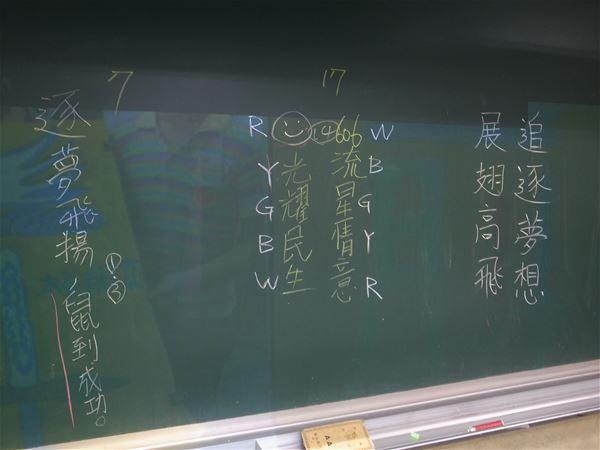 追逐夢想
展翅高飛
17
W B G Y R
606流星情意
光耀民生
R Y G B W
7
逐夢飛揚
鼠到成功。